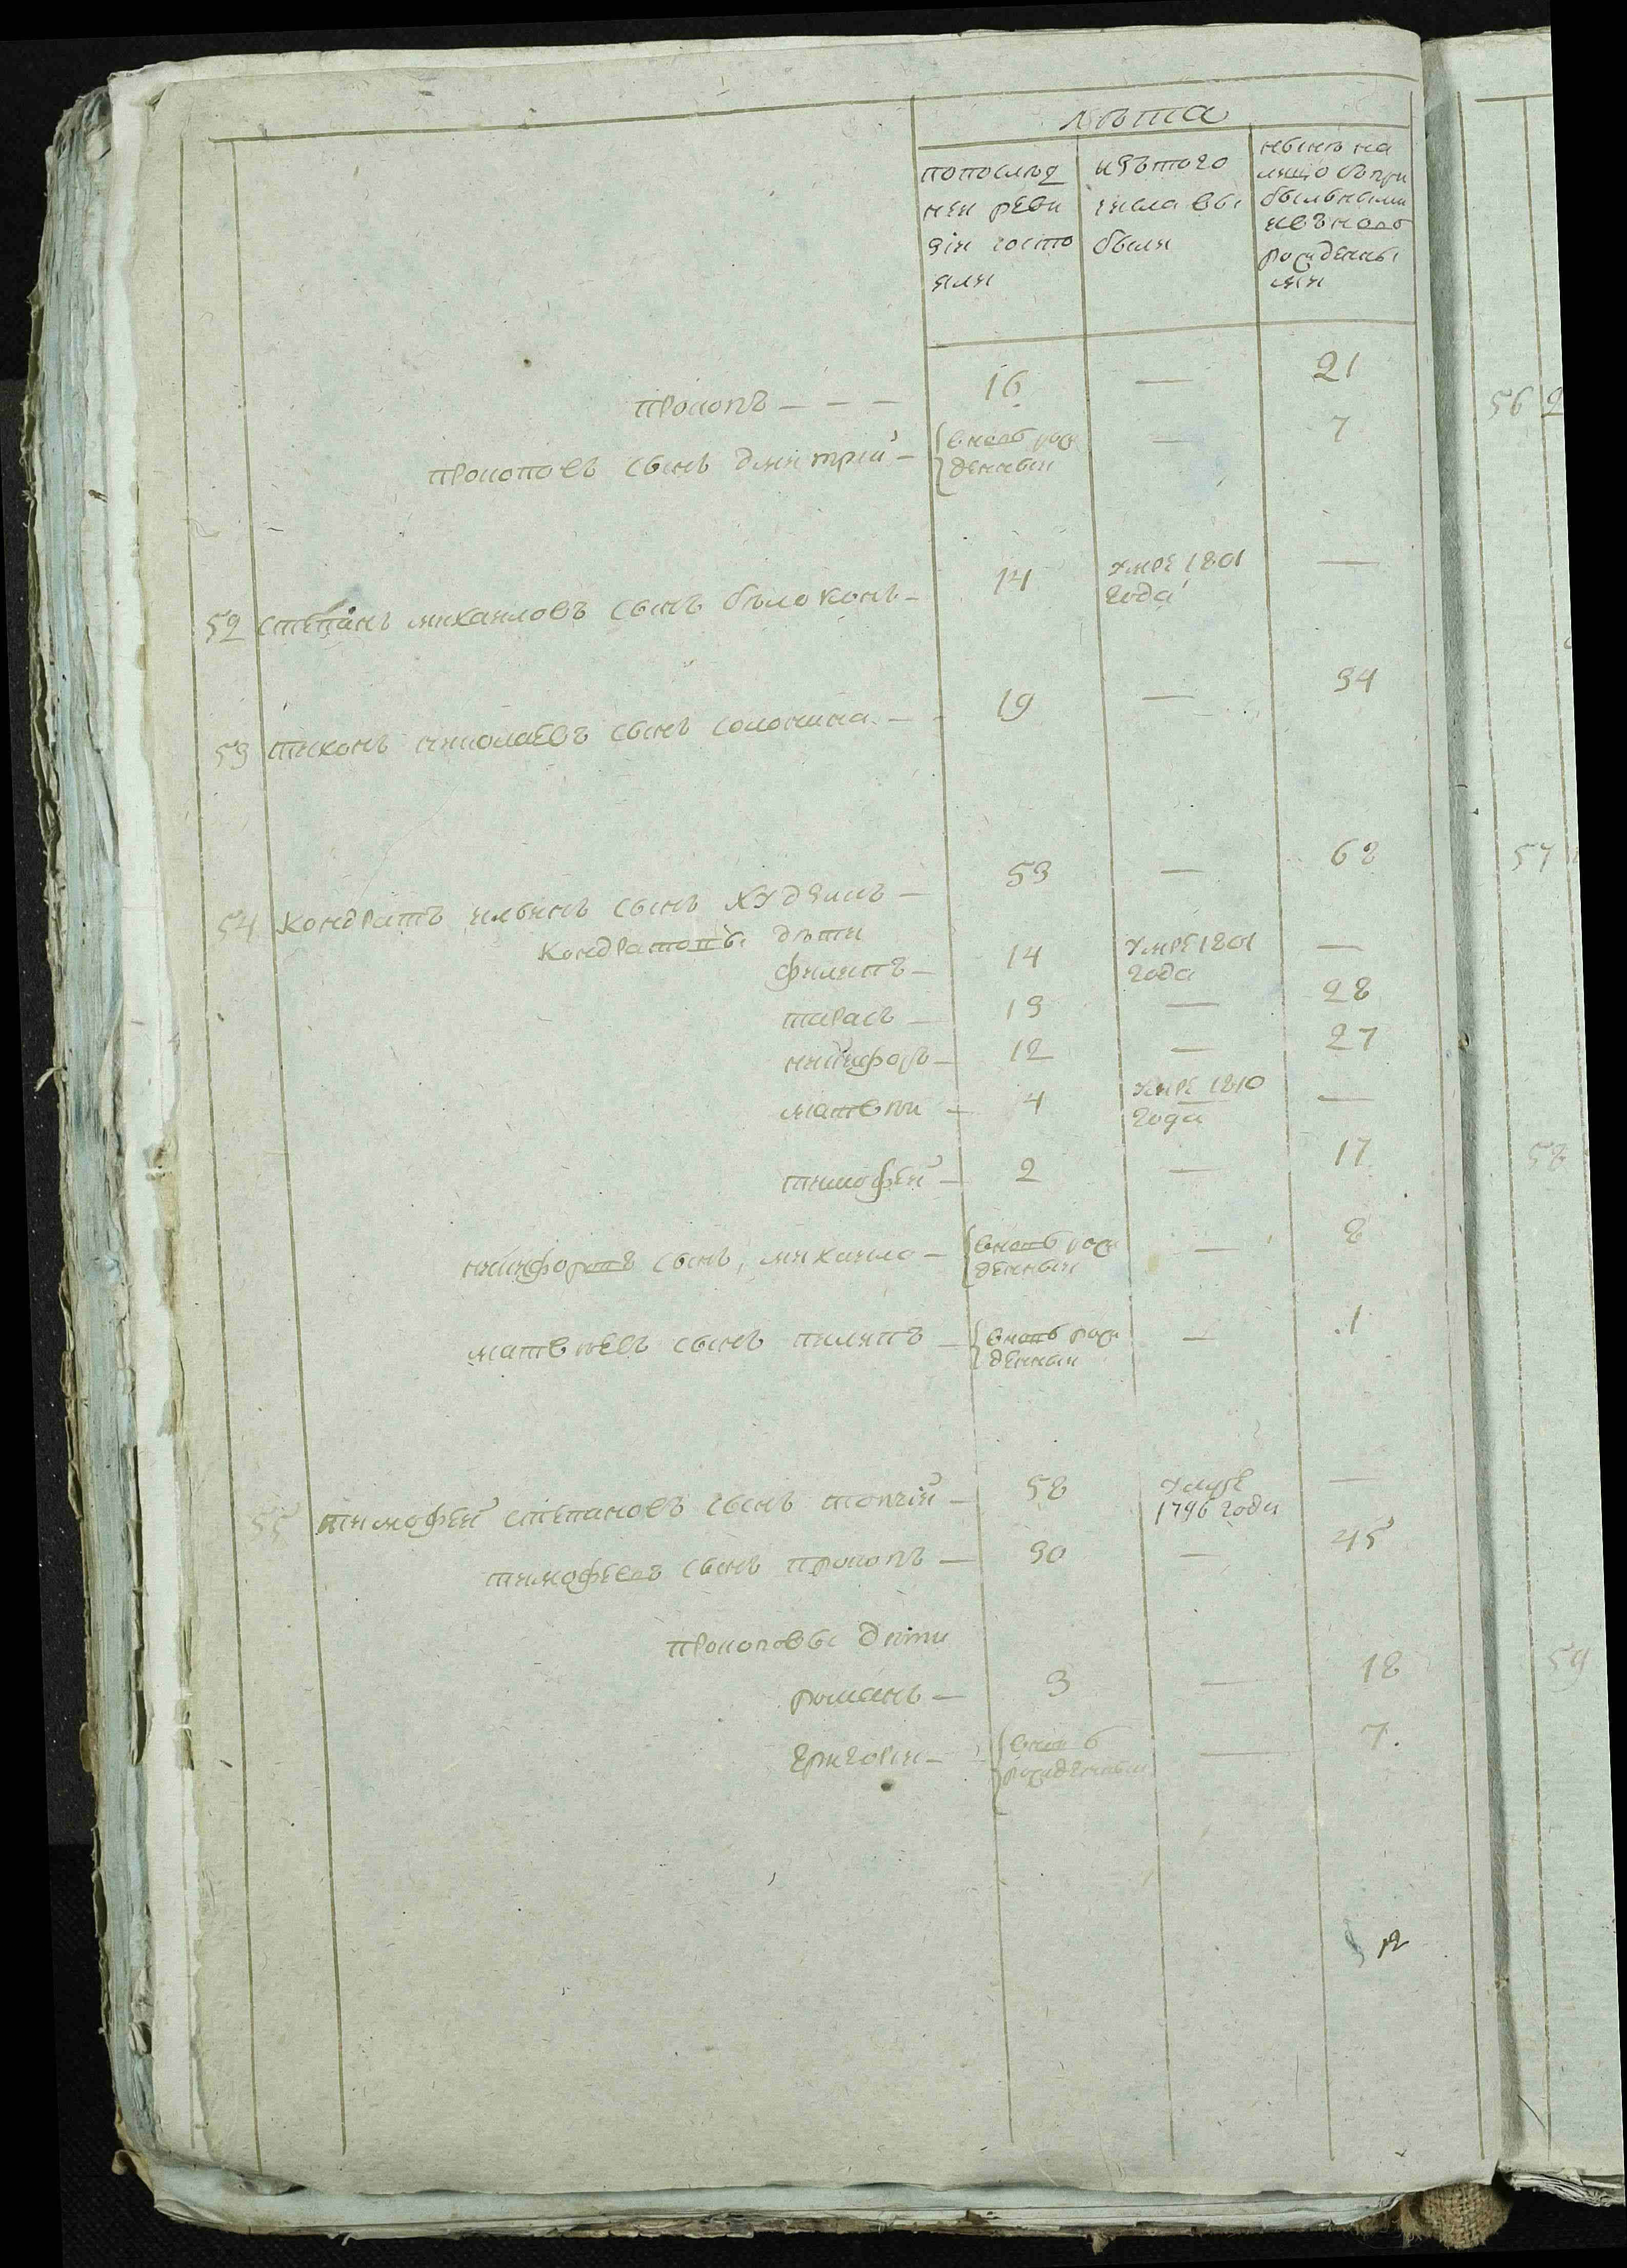 лѣта
попослѣд
ней реви
зіи состо
яли
изътого
числа вы
были
нынѣ на
лицо съпри
быльными
ивъновъ
рожденны
ми
прокопъ — — — 16 — 21
прокоповъ сынъ дмитрій — вновь рож
денный — 7
52 степанъ михаиловъ сынъ бѣлоконь — 14 умре 1801
года —
53 тихонъ николаевъ сынъ солонина — 19 — 34
54 кондратъ ильинъ сынъ худякъ — 53 — 68
кондратовы дѣти
филипъ — 14 умре 1801
года —
тарасъ — 13 — 28
никифоръ — 12 — 27
матвѣи — 4 умре 1810
года —
тимофей — 2 — 17
никифоровъ сынъ михаило — вновь рож
денный — 8
матвѣевъ сынъ пилипъ — вновь рож
денный — 1
55 тимофей степановъ сынъ топчій — 58 умре
1796 года —
тимофеевъ сынъ прокопъ — 30 — 45
прокоповы дѣти
романъ — 3 — 18
григории — вновь
рожденный — 7.
12
56
57
58
59